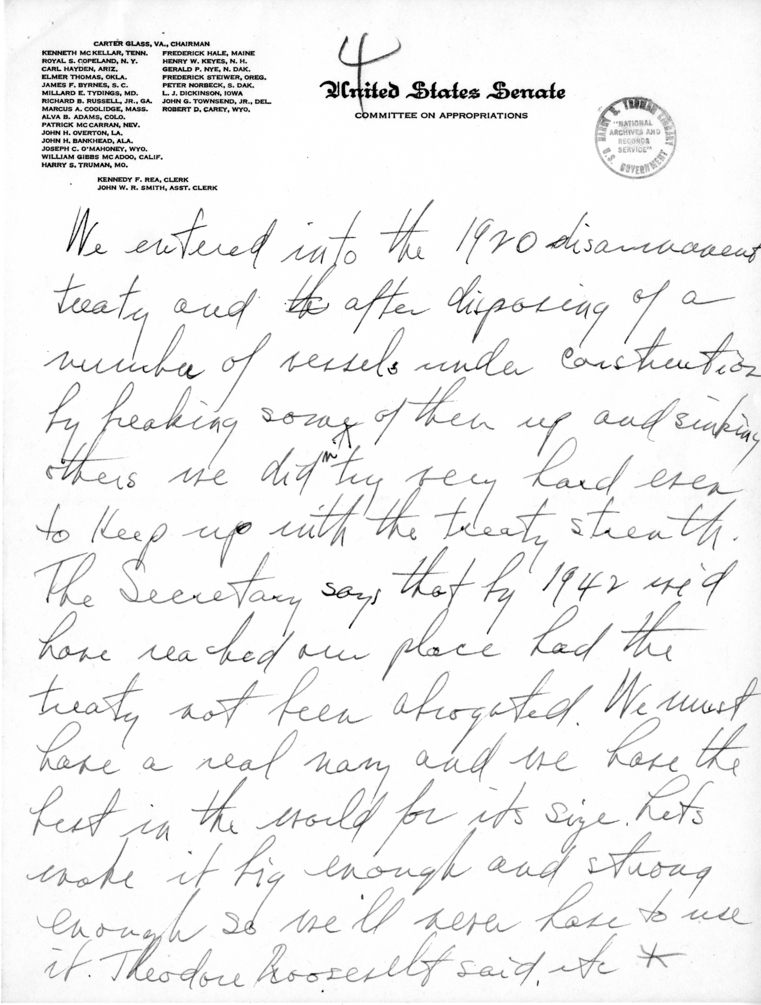 4
CARTER GLASS, VA., CHAIRMAN
KENNETH McKELLAR, TENN.
ROYAL S. COPELAND, N. Y.
CARL HAYDEN, ARIZ.
ELMER THOMAS, OKLA.
JAMES F. BYRNES, S. C.
MILLARD E. TYDINGS, MD.
RICHARD B. RUSSELL, JR., GA.
MARCUS A. COOLIDGE, MASS.
ALVA B. ADAMS, COLO.
PATRICK McCARRAN, NEV.
JOHN H. OVERTON, LA.
JOHN H. BANKHEAD, ALA.
JOSEPH C. O'MAHONEY, WYO.
WILLIAM GIBBS McADOO, CALIF.
HARRY S. TRUMAN, MO.
FREDERICK HALE, MAINE
HENRY W. KEYES, N. H.
GERALD P. NYE, N. DAK.
FREDERICK STEIWER, OREG.
PETER NORBECK, S. DAK.
L. J. DICKINSON, IOWA
JOHN G. TOWNSEND, JR., DEL.
ROBERT D. CAREY, WYO.
KENNEDY F. REA, CLERK
JOHN W. R. SMITH, ASST. CLERK
United States Senate
COMMITTEE ON APPROPRIATIONS
HARRY S. TRUMAN LIBRARY
"NATIONAL
ARCHIVES AND
RECORDS
SERVICE"
U.S. GOVERNMENT
We entered into the 1920 disarmament
treaty and th after disposing of a
number of vessels under construction
by breaking some of them up and sinking
others we didn't try very hard even
to keep up with the treaty strenth.
The Secretary says that by 1942 we'd
have reached our place had the
treaty not been abrogated. We must
have a real navy and we have the
best in the world for its size. Lets
make it big enough and strong
enough so we'll never have to use
it. Theodore Roosevelt said, etc *